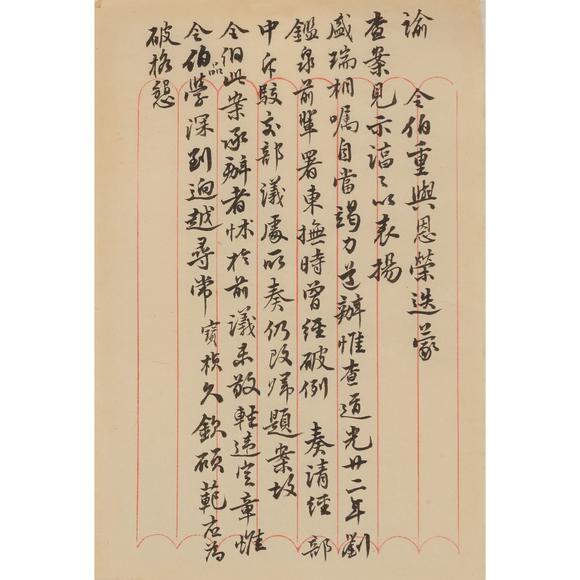 諭
令伯重與恩榮迭蒙
查案見示藹藹以表揚
盛瑞相囑自當竭力遵辦惟查道光廿二年劉
鑑泉前輩署東撫時曾經破例 奏請經 部
中斥駁交部議處所奏仍改歸題案故
令伯此案承辦者怵於前議未敢輕違定章惟
令伯品學深到迥越尋常 寶楨久欽碩範在為
破格懇